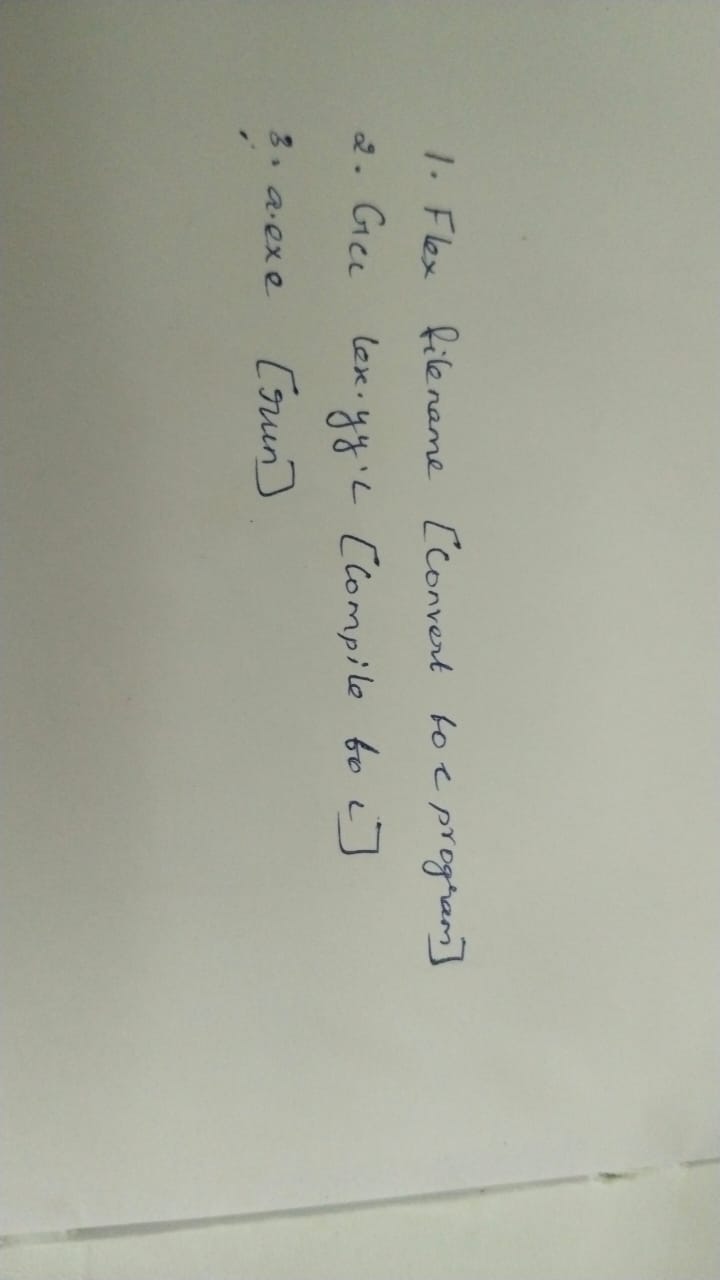 1. Flex filename [Convert to c program]
2. Gcc lex.yy.c [Compile to c]
3. a.exe [run]